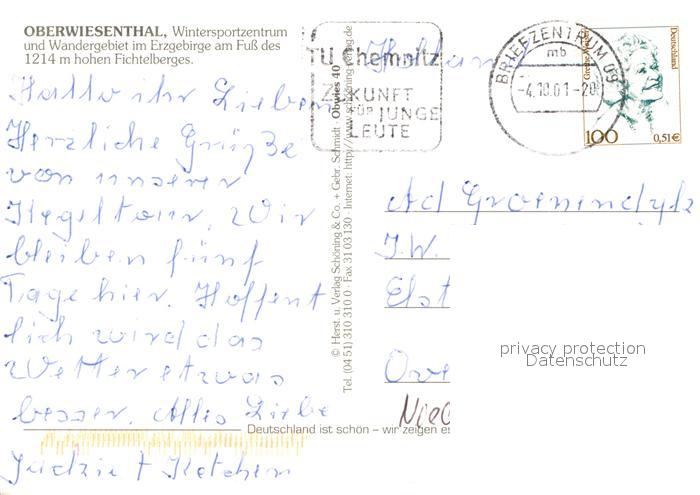 OBERWIESENTHAL, Wintersportzentrum
und Wandergebiet im Erzgebirge am Fuß des
1214 m hohen Fichtelberges.
Hallo ihr Lieben
Herzliche Grüße
von unserer
Kegeltour. Wir
bleiben fünf
Tage hier. Hoffent
lich wird das
Wetter etwas
besser. Alles Liebe
TU Chemnitz
ZUKUNFT
FÜR JUNGE
LEUTE
BRIEFZENTRUM 09
mb
-4.10.01-20
Deutschland
100
0,51€
© Herst. u. Verlag Schöning & Co. + Gebr. Schmidt · Obwies 40
Tel. (04 51) 310 310 0 · Fax 31 03 130 · Internet: http://www.schoening-verlag.de
Ad Groenendyk
J.W.
Elst
Ove
privacy protection
Datenschutz
Deutschland ist schön – wir zeigen es